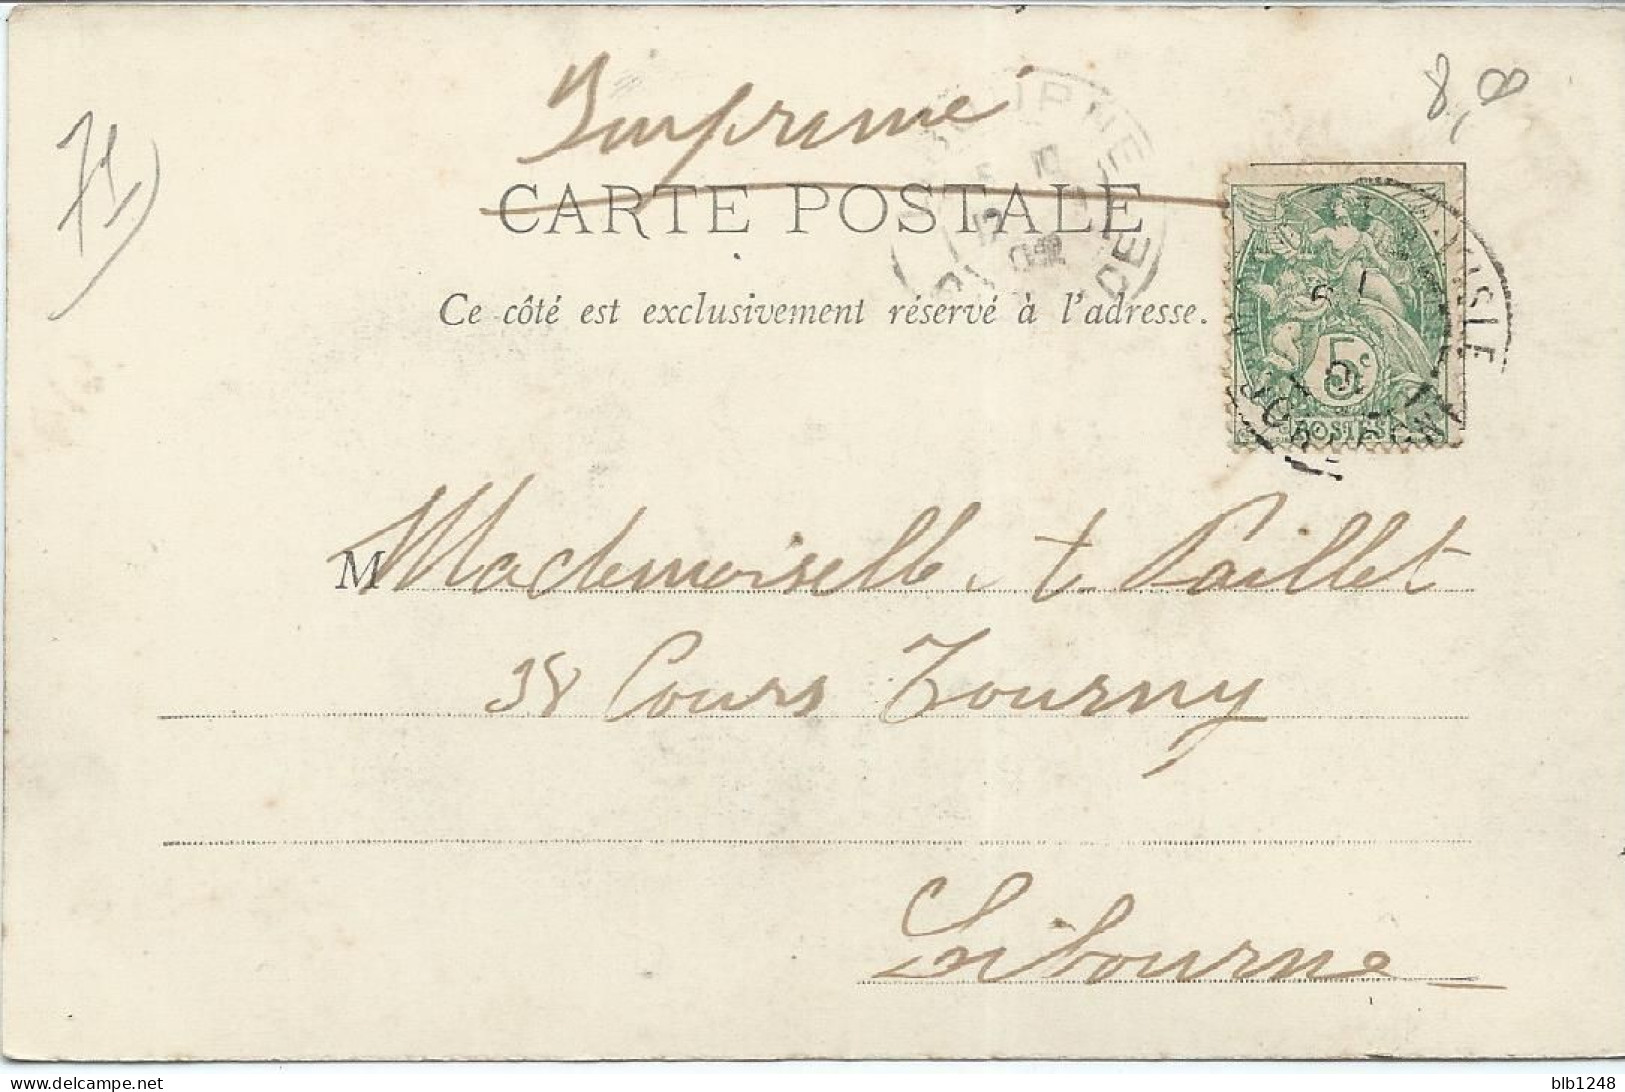 71
8,00
Imprimé
CARTE POSTALE
Ce côté est exclusivement réservé à l'adresse.
5c
POSTES
LIBOURNE
M Mademoiselle t Paillet
38 Cours Tourny
Libourne
blb1248